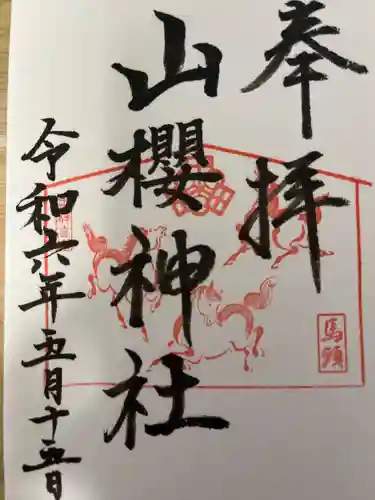 奉拝
山櫻神社
令和六年五月十五日
馬頭